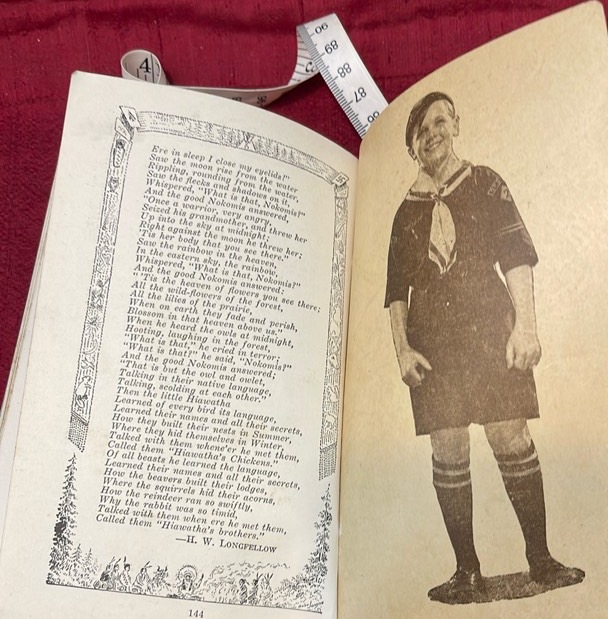 4
90
89
88
87
86
Ere in sleep I close my eyelids!"
Saw the moon rise from the water
Rippling, rounding from the water,
Saw the flecks and shadows on it,
Whispered, "What is that, Nokomis?"
And the good Nokomis answered,
"Once a warrior, very angry,
Seized his grandmother, and threw her
Up into the sky at midnight;
Right against the moon he threw her;
'Tis her body that you see there."
Saw the rainbow in the heaven,
In the eastern sky, the rainbow,
Whispered, "What is that, Nokomis?"
And the good Nokomis answered:
"'Tis the heaven of flowers you see there;
All the wild-flowers of the forest,
All the lilies of the prairie,
When on earth they fade and perish,
Blossom in that heaven above us."
When he heard the owls at midnight,
Hooting, laughing in the forest,
"What is that," he cried in terror;
"What is that?" he said, "Nokomis?"
And the good Nokomis answered;
"That is but the owl and owlet,
Talking in their native language,
Talking, scolding at each other."
Then the little Hiawatha
Learned of every bird its language,
Learned their names and all their secrets,
How they built their nests in Summer,
Where they hid themselves in Winter,
Talked with them whene'er he met them,
Called them "Hiawatha's Chickens."
Of all beasts he learned the language,
Learned their names and all their secrets,
How the beavers built their lodges,
Where the squirrels hid their acorns,
How the reindeer ran so swiftly,
Why the rabbit was so timid,
Talked with them when ere he met them,
Called them "Hiawatha's brothers."
—H. W. LONGFELLOW
144